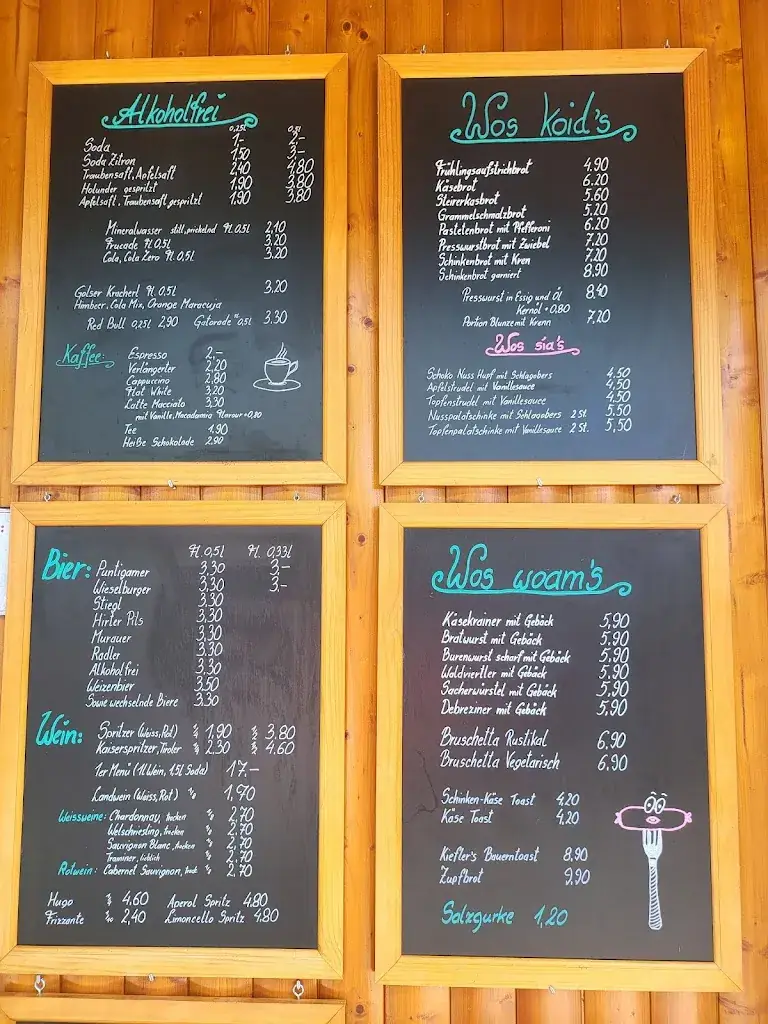 Alkoholfrei
0,25l 0,5l
Soda 1,- 2,-
Soda Zitron 1,50 3,-
Traubensaft, Apfelsaft 2,40 4,80
Holunder gespritzt 1,90 3,80
Apfelsaft, Traubensaft gespritzt 1,90 3,80
Mineralwasser still, prickelnd Fl. 0,5l 2,10
Frucade Fl. 0,5l 3,20
Cola, Cola Zero Fl. 0,5l 3,20
Golser Kracherl Fl. 0,5l 3,20
Himbeer, Cola Mix, Orange Maracuja
Red Bull 0,25l 2,90 Gatorade 0,5l 3.30
Kaffee:
Espresso 2,-
Verlängerter 2,20
Cappuccino 2,80
Flat White 3,20
Latte Macciato 3,30
mit Vanille, Macadamia Flavour +0,80
Tee 1.90
Heiße Schokolade 2.90
Wos koid's
Frühlingsaufstrichbrot 4.90
Käsebrot 6.20
Steirerkasbrot 5.60
Grammelschmalzbrot 5.20
Pastetenbrot mit Pfefferoni 6.20
Presswurstbrot mit Zwiebel 7.20
Schinkenbrot mit Kren 7.20
Schinkenbrot garniert 8.90
Presswurst in Essig und Öl 8,40
Kernöl +0.80
Portion Blunze mit Krenn 7.20
Wos sia's
Schoko Nuss Hupf mit Schlagobers 4.50
Apfelstrudel mit Vanillesauce 4,50
Topfenstrudel mit Vanillesauce 4.50
Nusspalatschinke mit Schlagobers 2 St. 5.50
Topfenpalatschinke mit Vanillesauce 2 St. 5,50
Bier: Fl. 0,5l Fl. 0,33l
Puntigamer 3,30 3,-
Wieselburger 3,30 3,-
Stiegl 3,30
Hirter Pils 3.30
Murauer 3.30
Radler 3.30
Alkoholfrei 3.30
Weizenbier 3.50
Sowie wechselnde Biere 3.30
Wein: Spritzer (Weiss, Rot) 1/4 1,90 1/2 3,80
Kaiserspritzer, Tiroler 1/4 2,30 1/2 4,60
1er Menü (1l Wein, 1,5l Soda) 17,-
Landwein (Weiss, Rot) 1/8 1,70
Weissweine: Chardonnay, trocken 1/8 2,70
Welschriesling, trocken 1/8 2,70
Sauvignon Blanc, trocken 1/8 2,70
Traminer, lieblich 1/8 2,70
Rotwein: Cabernet Sauvignon, 1/8 2,70
Hugo 4,60 Aperol Spritz 4,80
Frizzante 2,40 Limoncello Spritz 4,80
Wos woam's
Käsekrainer mit Gebäck 5,90
Bratwurst mit Gebäck 5,90
Burenwurst scharf mit Gebäck 5,90
Waldviertler mit Gebäck 5,90
Sacherwürstel mit Gebäck 5,90
Debreziner mit Gebäck 5,90
Bruschetta Rustikal 6,90
Bruschetta Vegetarisch 6,90
Schinken-Käse Toast 4,20
Käse Toast 4,20
Kiefler's Bauerntoast 8,90
Zupfbrot 9,90
Salzgurke 1,20